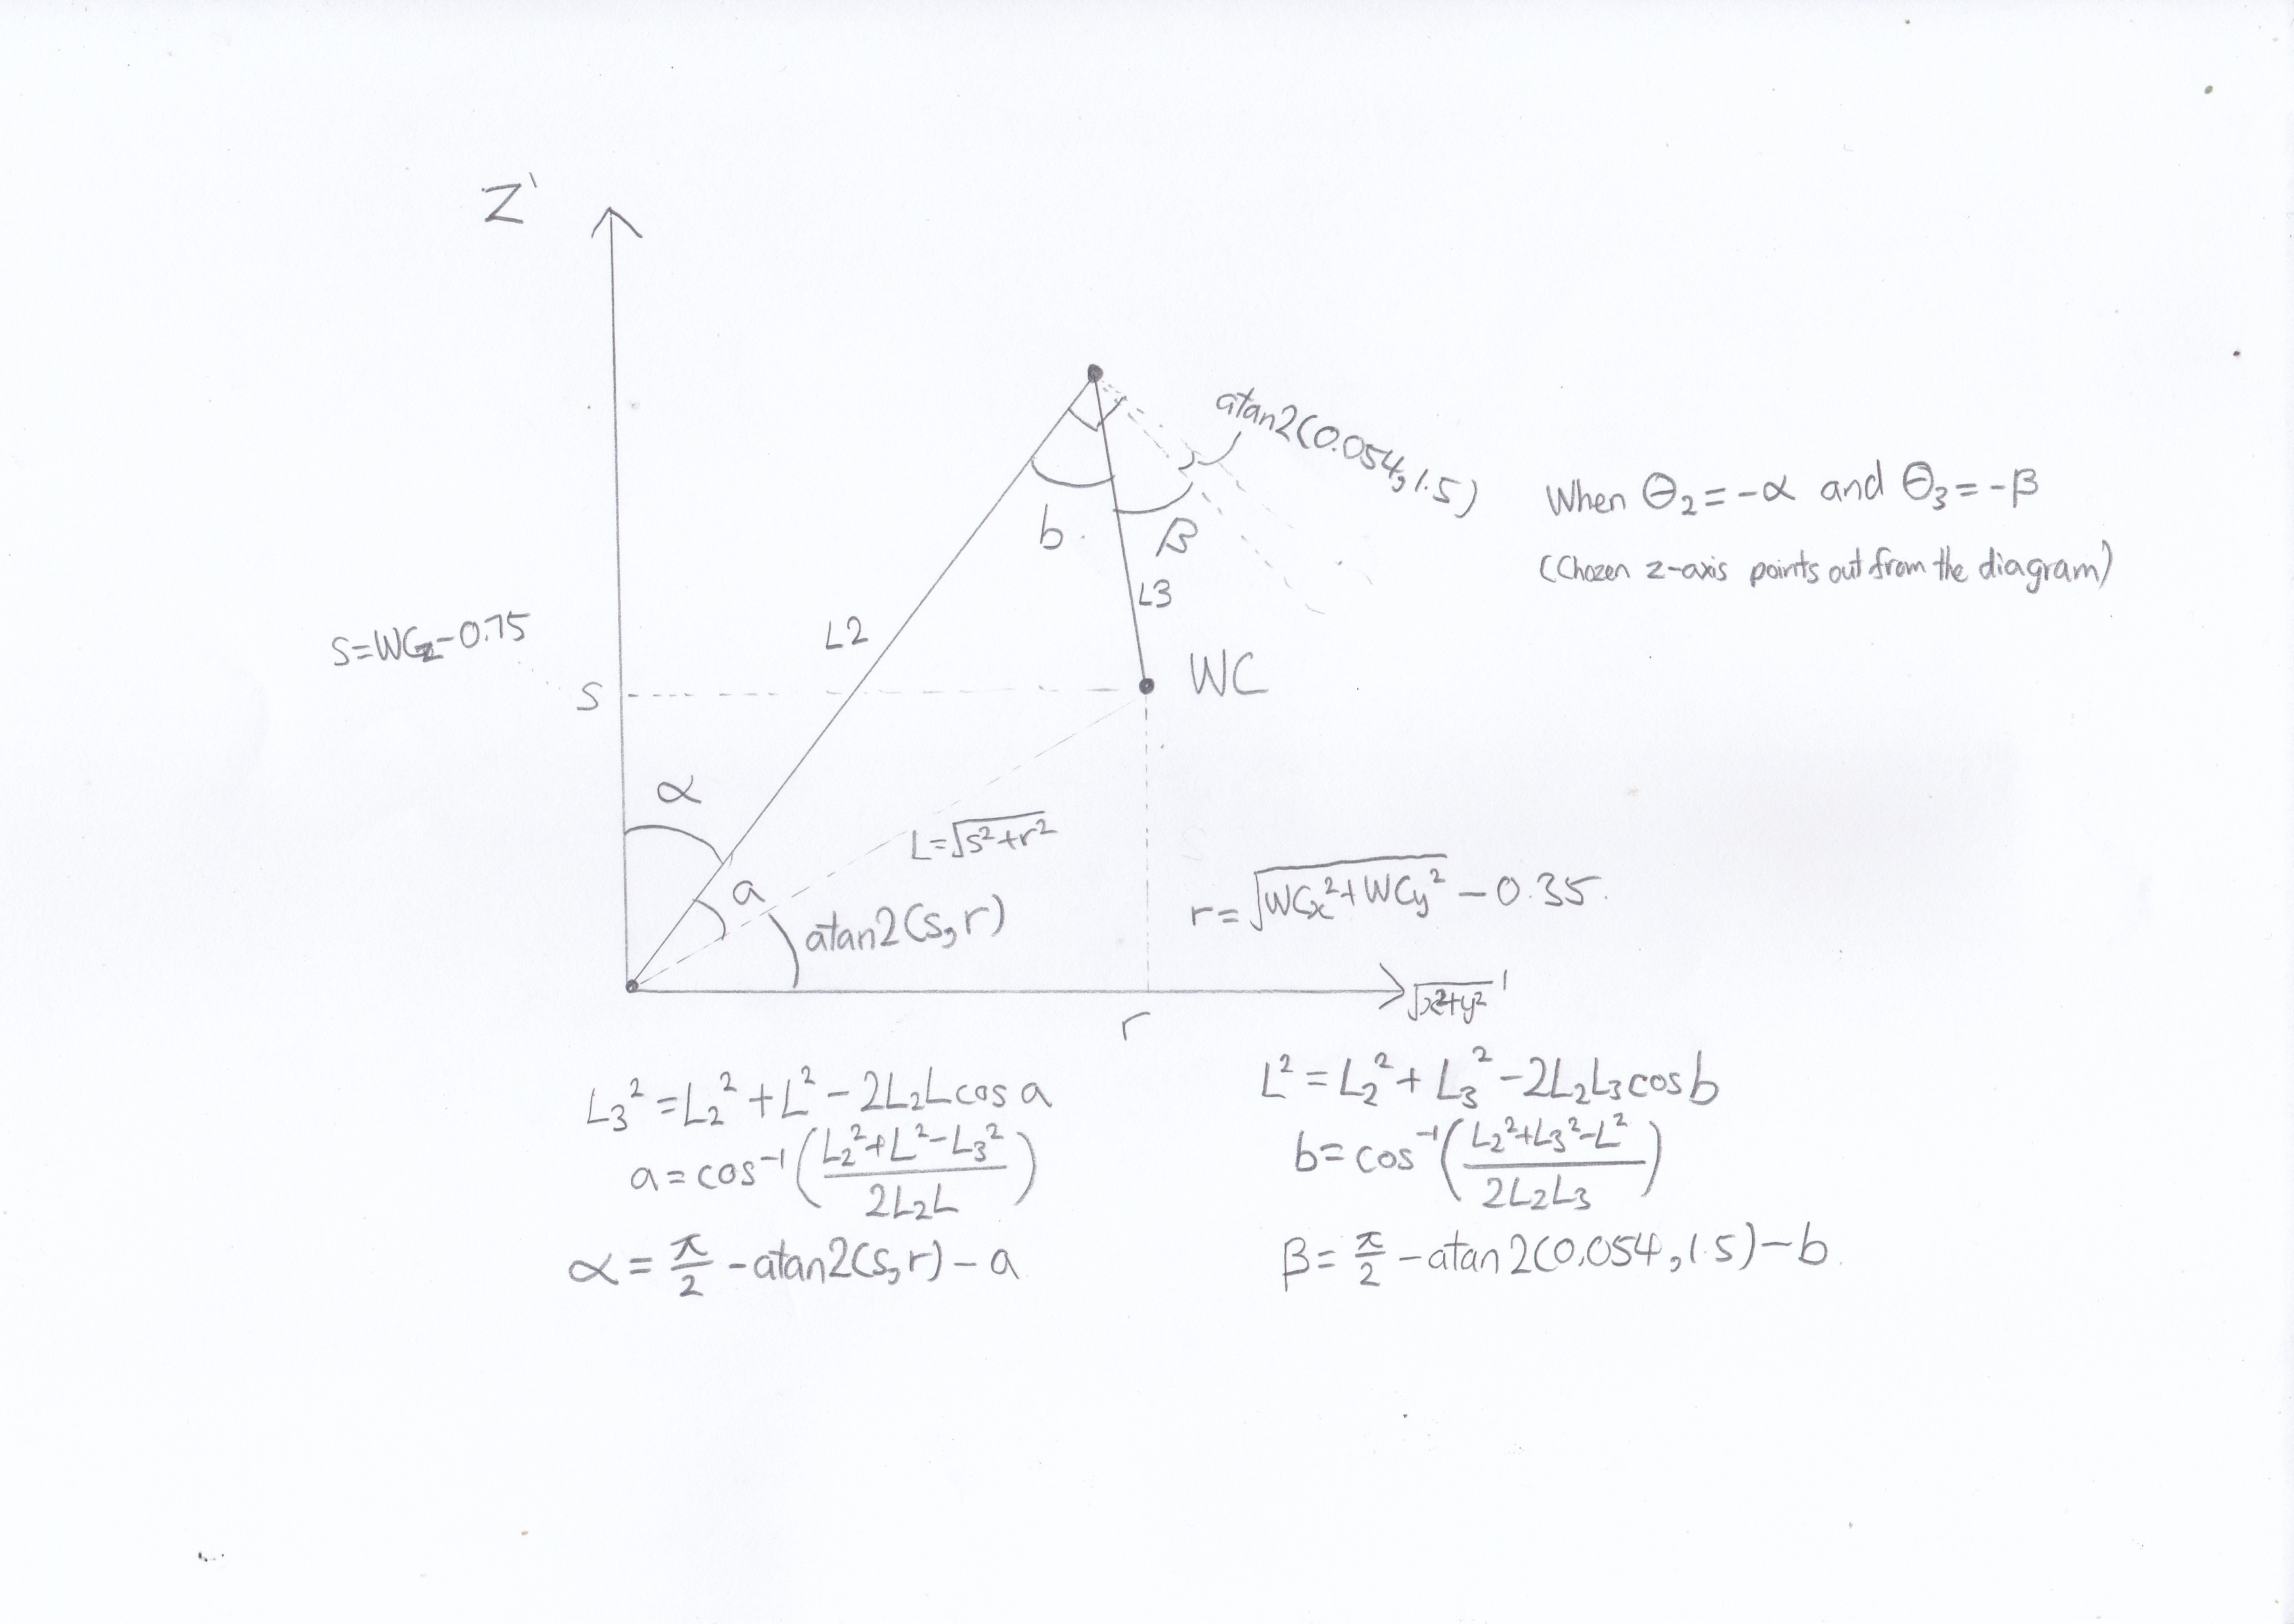 Z'
atan2(0.054,1.5)
When Θ₂=-α and Θ₃=-β
(Chozen z-axis points out from the diagram)
b
β
L3
L2
S=WCz-0.75
S
WC
α
L=√(s²+r²)
a
atan2(s,r)
r=√(WCx²+WCy²) - 0.35
√(x²+y²)'
r
L₃²=L₂²+L²-2L₂Lcos a
a=cos⁻¹((L₂²+L²-L₃²)/(2L₂L))
α=π/2-atan2(s,r)-a
L²=L₂²+L₃²-2L₂L₃cos b
b=cos⁻¹((L₂²+L₃²-L²)/(2L₂L₃))
β=π/2-atan2(0.054,1.5)-b